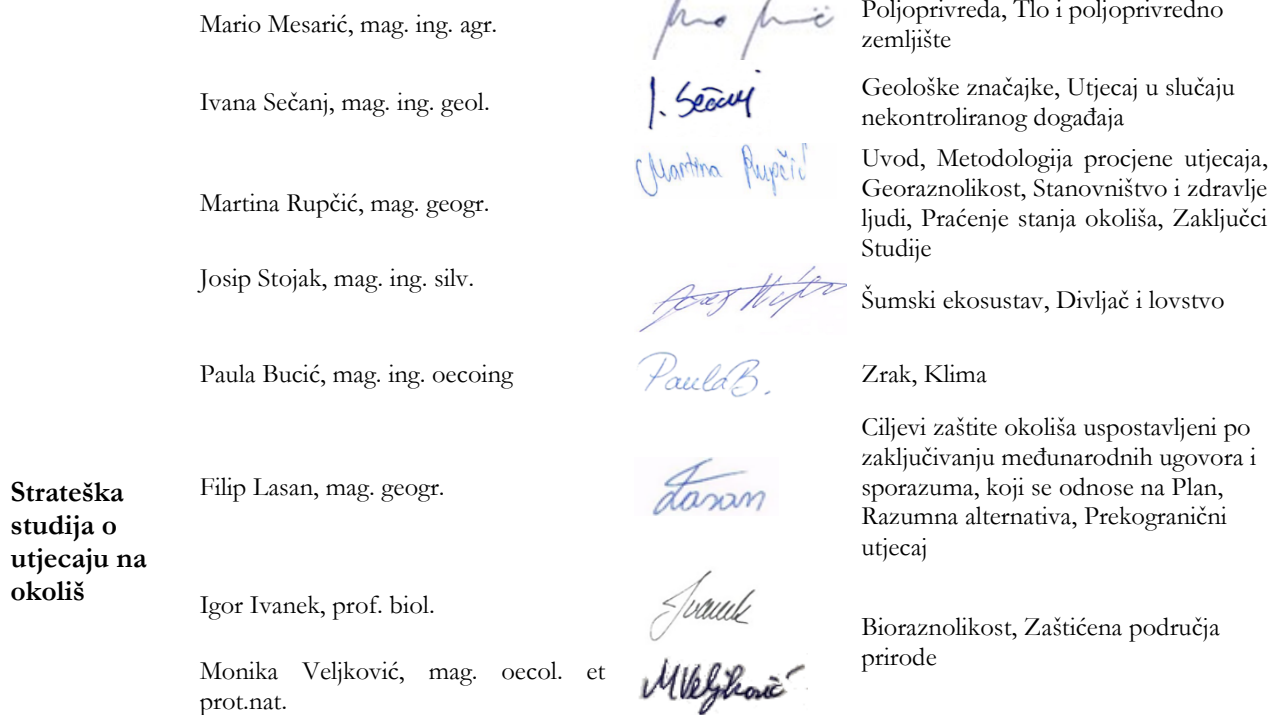 Mario Mesarić, mag. ing. agr.
Poljoprivreda, Tlo i poljoprivredno
zemljište
Ivana Sečanj, mag. ing. geol.
I. Sečanj
Geološke značajke, Utjecaj u slučaju
nekontroliranog događaja
Martina Rupčić, mag. geogr.
Martina Rupčić
Uvod, Metodologija procjene utjecaja,
Georaznolikost, Stanovništvo i zdravlje
ljudi, Praćenje stanja okoliša, Zaključci
Studije
Josip Stojak, mag. ing. silv.
Šumski ekosustav, Divljač i lovstvo
Paula Bucić, mag. ing. oecoing
Paula B.
Zrak, Klima
Strateška
studija o
utjecaju na
okoliš
Filip Lasan, mag. geogr.
Lasan
Ciljevi zaštite okoliša uspostavljeni po
zaključivanju međunarodnih ugovora i
sporazuma, koji se odnose na Plan,
Razumna alternativa, Prekogranični
utjecaj
Igor Ivanek, prof. biol.
Ivanek
Bioraznolikost, Zaštićena područja
prirode
Monika Veljković, mag. oecol. et
prot.nat.
MVeljković